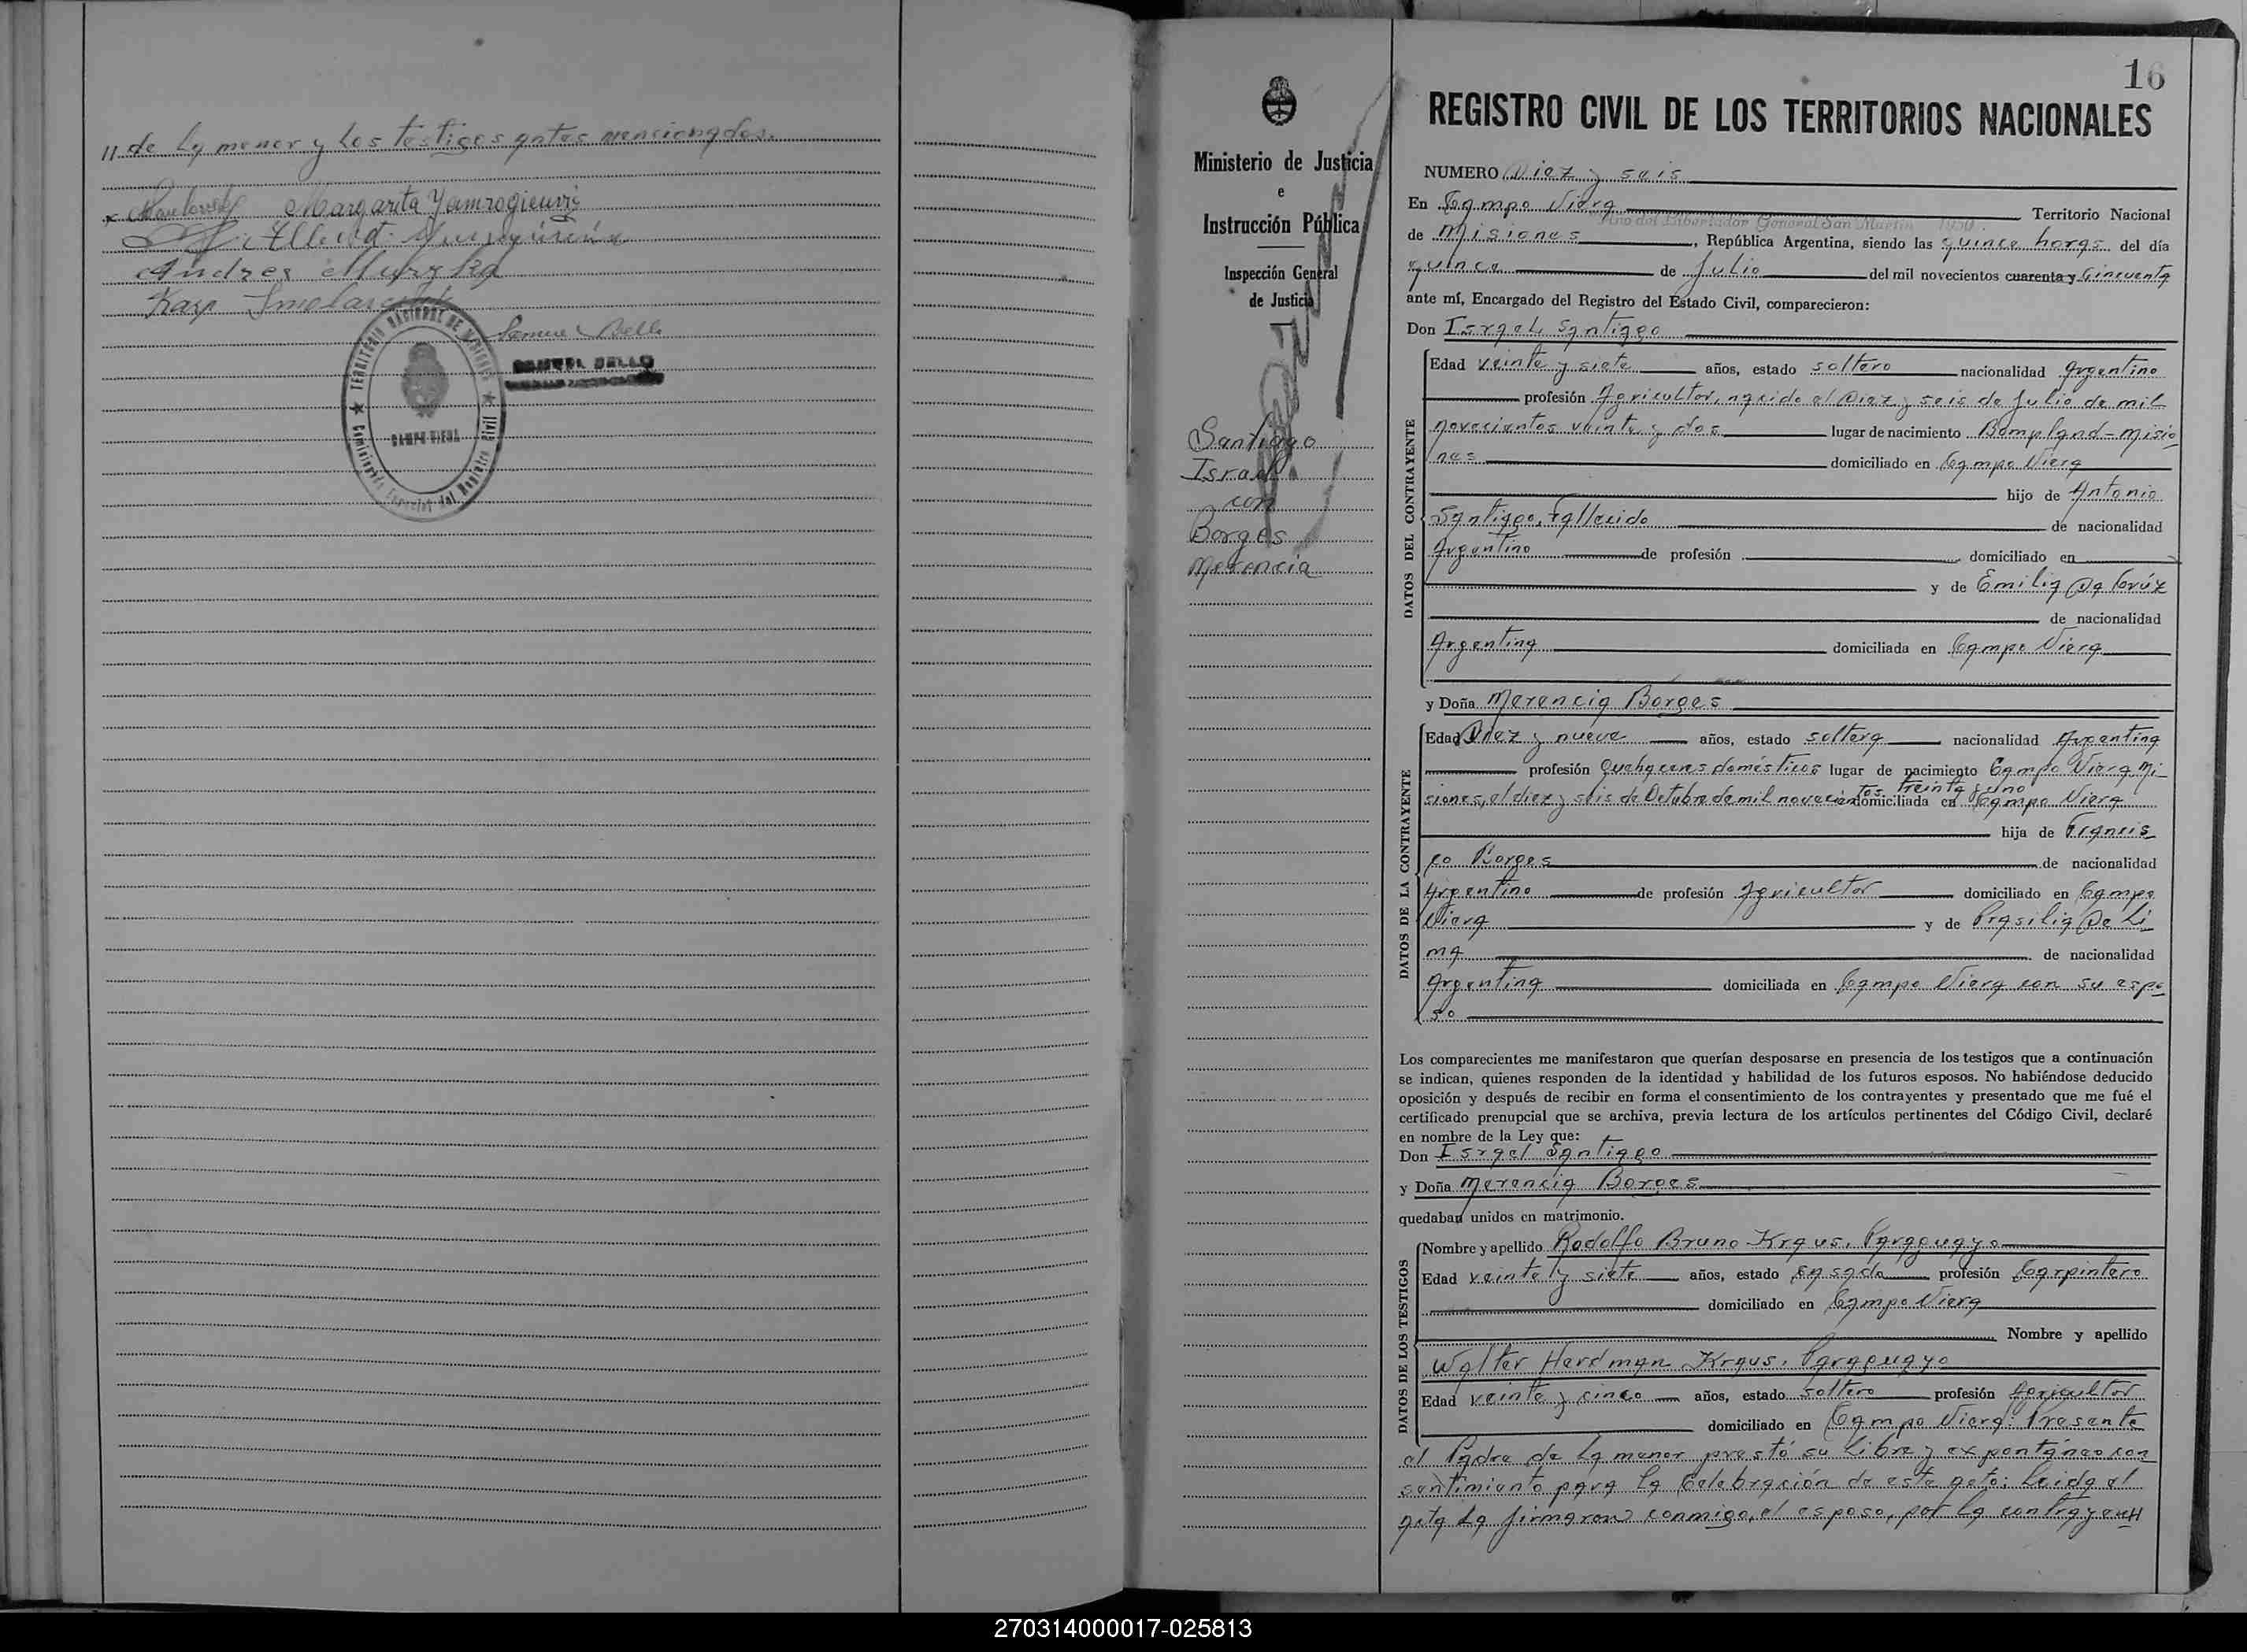 // de la menor y los testigos antes mencionados.
Margarita Yamrogieuvz
Andres Muzyka
Karp
Samuel Bello
SAMUEL BELLO
TERRITORIO NACIONAL DE MISIONES
CAMPO VIERA
16
Ministerio de Justicia
e
Instrucción Pública
Inspección General
de Justicia
Santiago
Israel
con
Borges
Merencia
REGISTRO CIVIL DE LOS TERRITORIOS NACIONALES
NUMERO Diez y seis
En Campo Viera Territorio Nacional
Año del Libertador General San Martín 1950
de Misiones, República Argentina, siendo las quince horas del día
quince de Julio del mil novecientos cuarenta y Cincuenta
ante mí, Encargado del Registro del Estado Civil, comparecieron:
Don Israel Santiago
DATOS DEL CONTRAYENTE
Edad veinte y siete años, estado soltero nacionalidad Argentino
profesión Agricultor, nacido el Diez y seis de Julio de mil
novecientos veinte y dos lugar de nacimiento Bompland - Misio-
nes domiciliado en Campo Viera
hijo de Antonio
Santiago, Fallecido de nacionalidad
Argentino de profesión domiciliado en
y de Emilia Da Crúz
de nacionalidad
Argentina domiciliada en Campo Viera
y Doña Merencia Borges
DATOS DE LA CONTRAYENTE
Edad Diez y nueve años, estado soltera nacionalidad Argentina
profesión Quehaceres domésticos lugar de nacimiento Campo Viera Mi-
siones, el diez y seis de Octubre de mil novecientos treinta y uno domiciliada en Campo Viera
hija de Francis
co Borges de nacionalidad
Argentino de profesión Agricultor domiciliado en Campo
Viera y de Brasilia De Li
ma de nacionalidad
Argentina domiciliada en Campo Viera con su espo-
so
Los comparecientes me manifestaron que querían desposarse en presencia de los testigos que a continuación
se indican, quienes responden de la identidad y habilidad de los futuros esposos. No habiéndose deducido
oposición y después de recibir en forma el consentimiento de los contrayentes y presentado que me fué el
certificado prenupcial que se archiva, previa lectura de los artículos pertinentes del Código Civil, declaré
en nombre de la Ley que:
Don Israel Santiago
y Doña Merencia Borges
quedaban unidos en matrimonio.
DATOS DE LOS TESTIGOS
Nombre y apellido Rodolfo Bruno Kraus, Paraguayo
Edad veinte y siete años, estado casado profesión Carpintero
domiciliado en Campo Viera
Nombre y apellido
Walter Herdman Kraus, Paraguayo
Edad veinte y cinco años, estado soltero profesión Agricultor
domiciliado en Campo Viera: Presente
el Padre de la menor prestó su libre y expontáneo con
sentimiento para la Celebración de este acto; Leida el
acta la firmaron conmigo, el esposo, por la contrayent
270314000017-025813